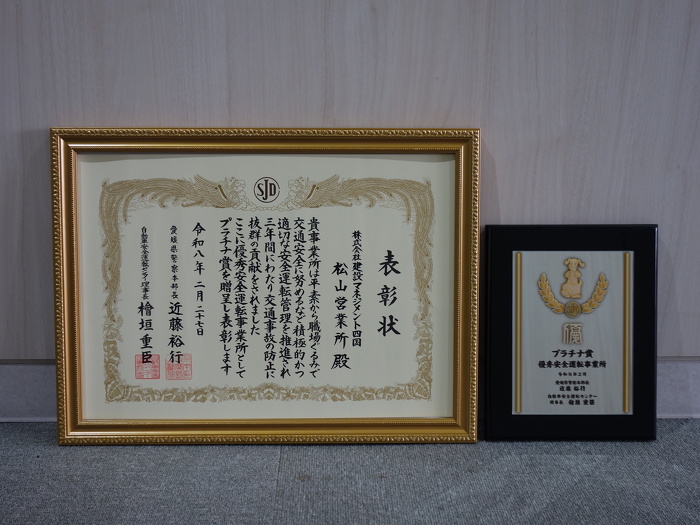 SJD
表彰状
株式会社建設マネジメント四国
松山営業所 殿
貴事業所は平素から職場ぐるみで
交通安全に努めるなど積極的かつ
適切な安全運転管理を推進され
三年間にわたり交通事故の防止に
抜群の貢献をされました
ここに優秀安全運転事業所として
プラチナ賞を贈呈し表彰します
令和八年二月二十七日
愛媛県警察本部長 近藤裕行
自動車安全運転センター理事長 檜垣重臣
プラチナ賞
優秀安全運転事業所
令和8年2月
愛媛県警察本部長
近藤 裕行
自動車安全運転センター
理事長 檜垣 重臣